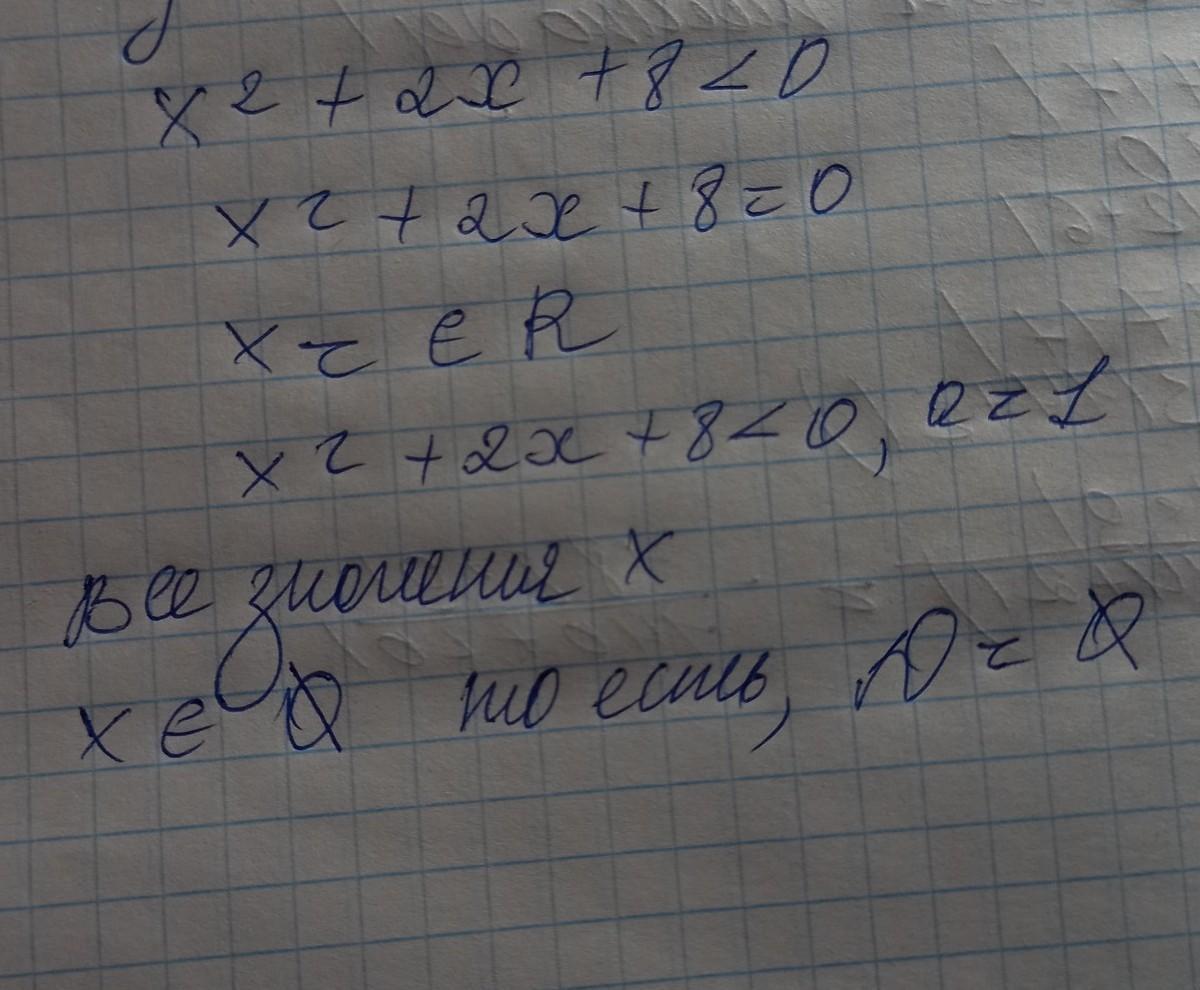 x² + 2x + 8 < 0
x² + 2x + 8 = 0
x = ∈ R
x² + 2x + 8 < 0, a = 1
все значения x
x ∈ Ø то есть, D = Ø